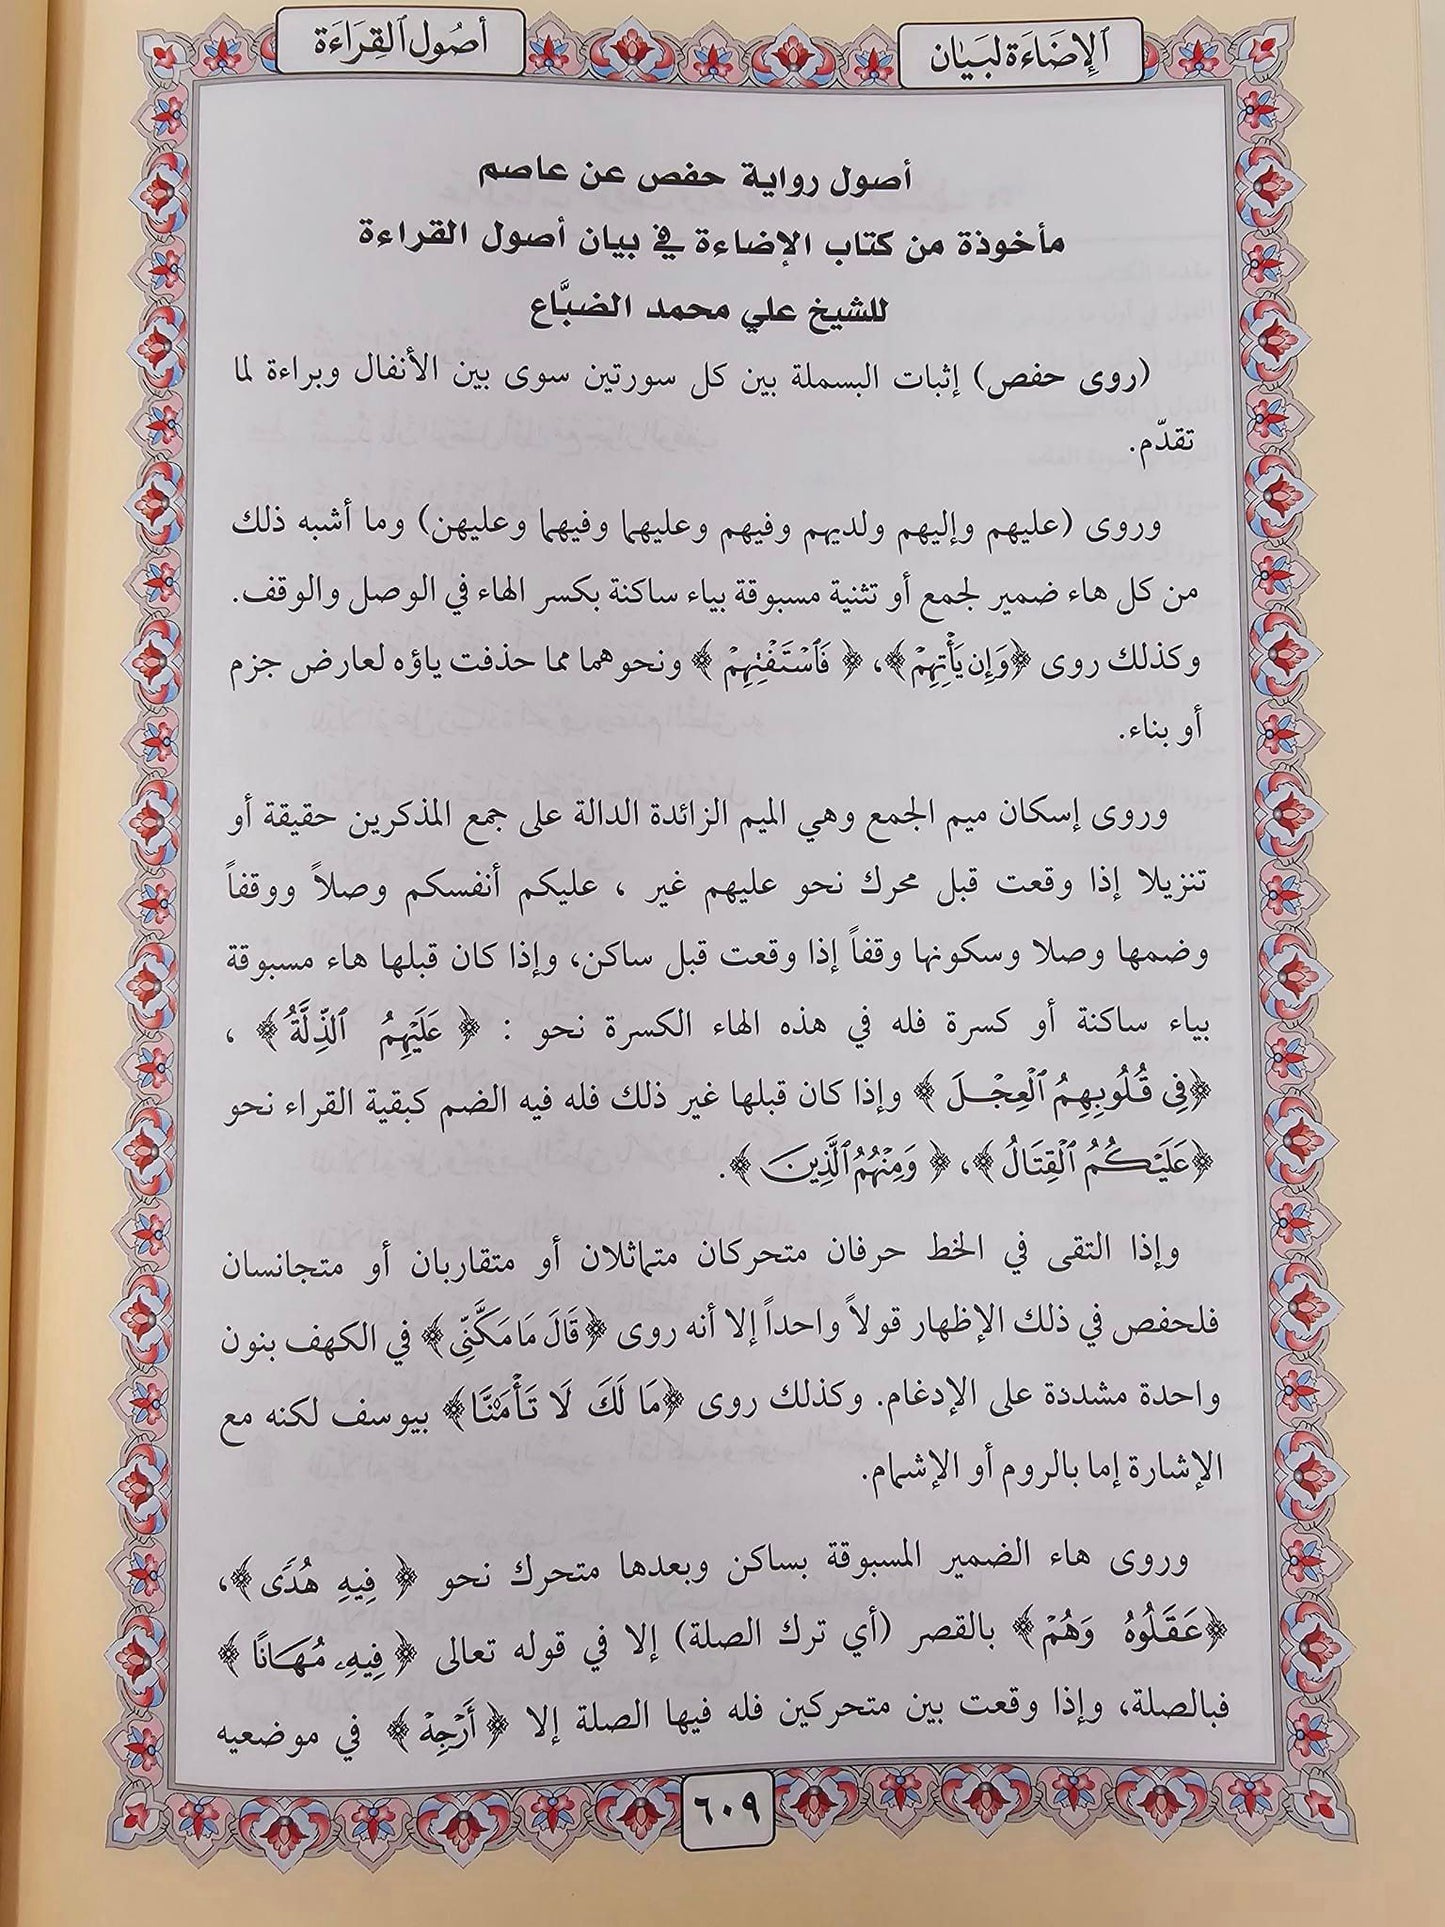 الإِضَاءَة لبَيَان
أصُول القِرَاءَة
أصول رواية حفص عن عاصم
مأخوذة من كتاب الإضاءة في بيان أصول القراءة
للشيخ علي محمد الضبَّاع
(روى حفص) إثبات البسملة بين كل سورتين سوى بين الأنفال وبراءة لما
تقدّم.
وروى (عليهم وإليهم ولديهم وفيهم وعليهما وفيهما وعليهن) وما أشبه ذلك
من كل هاء ضمير لجمع أو تثنية مسبوقة بياء ساكنة بكسر الهاء في الوصل والوقف.
وكذلك روى ﴿وَإِن يَأْتِهِمْ﴾، ﴿فَٱسْتَفْتِهِمْ﴾ ونحوهما مما حذفت ياؤه لعارض جزم
أو بناء.
وروى إسكان ميم الجمع وهي الميم الزائدة الدالة على جمع المذكرين حقيقة أو
تنزيلا إذا وقعت قبل محرك نحو عليهم غير ، عليكم أنفسكم وصلاً ووقفاً
وضمها وصلا وسكونها وقفاً إذا وقعت قبل ساكن، وإذا كان قبلها هاء مسبوقة
بياء ساكنة أو كسرة فله في هذه الهاء الكسرة نحو : ﴿عَلَيْهِمُ ٱلذِّلَّةُ﴾ ،
﴿فِى قُلُوبِهِمُ ٱلْعِجْلَ﴾ وإذا كان قبلها غير ذلك فله فيه الضم كبقية القراء نحو
﴿عَلَيْكُمُ ٱلْقِتَالُ﴾، ﴿وَمِنْهُمُ ٱلَّذِينَ﴾.
وإذا التقى في الخط حرفان متحركان متماثلان أو متقاربان أو متجانسان
فلحفص في ذلك الإظهار قولاً واحداً إلا أنه روى ﴿قَالَ مَا مَكَّنِّى﴾ في الكهف بنون
واحدة مشددة على الإدغام. وكذلك روى ﴿مَا لَكَ لَا تَأْمَ۫نَّا﴾ بيوسف لكنه مع
الإشارة إما بالروم أو الإشمام.
وروى هاء الضمير المسبوقة بساكن وبعدها متحرك نحو ﴿فِيهِ هُدًى﴾،
﴿عَقَلُوهُ وَهُمْ﴾ بالقصر (أي ترك الصلة) إلا في قوله تعالى ﴿فِيهِۦ مُهَانًا﴾
فبالصلة، وإذا وقعت بين متحركين فله فيها الصلة إلا ﴿أَرْجِهْ﴾ في موضعيه
٦٠٩